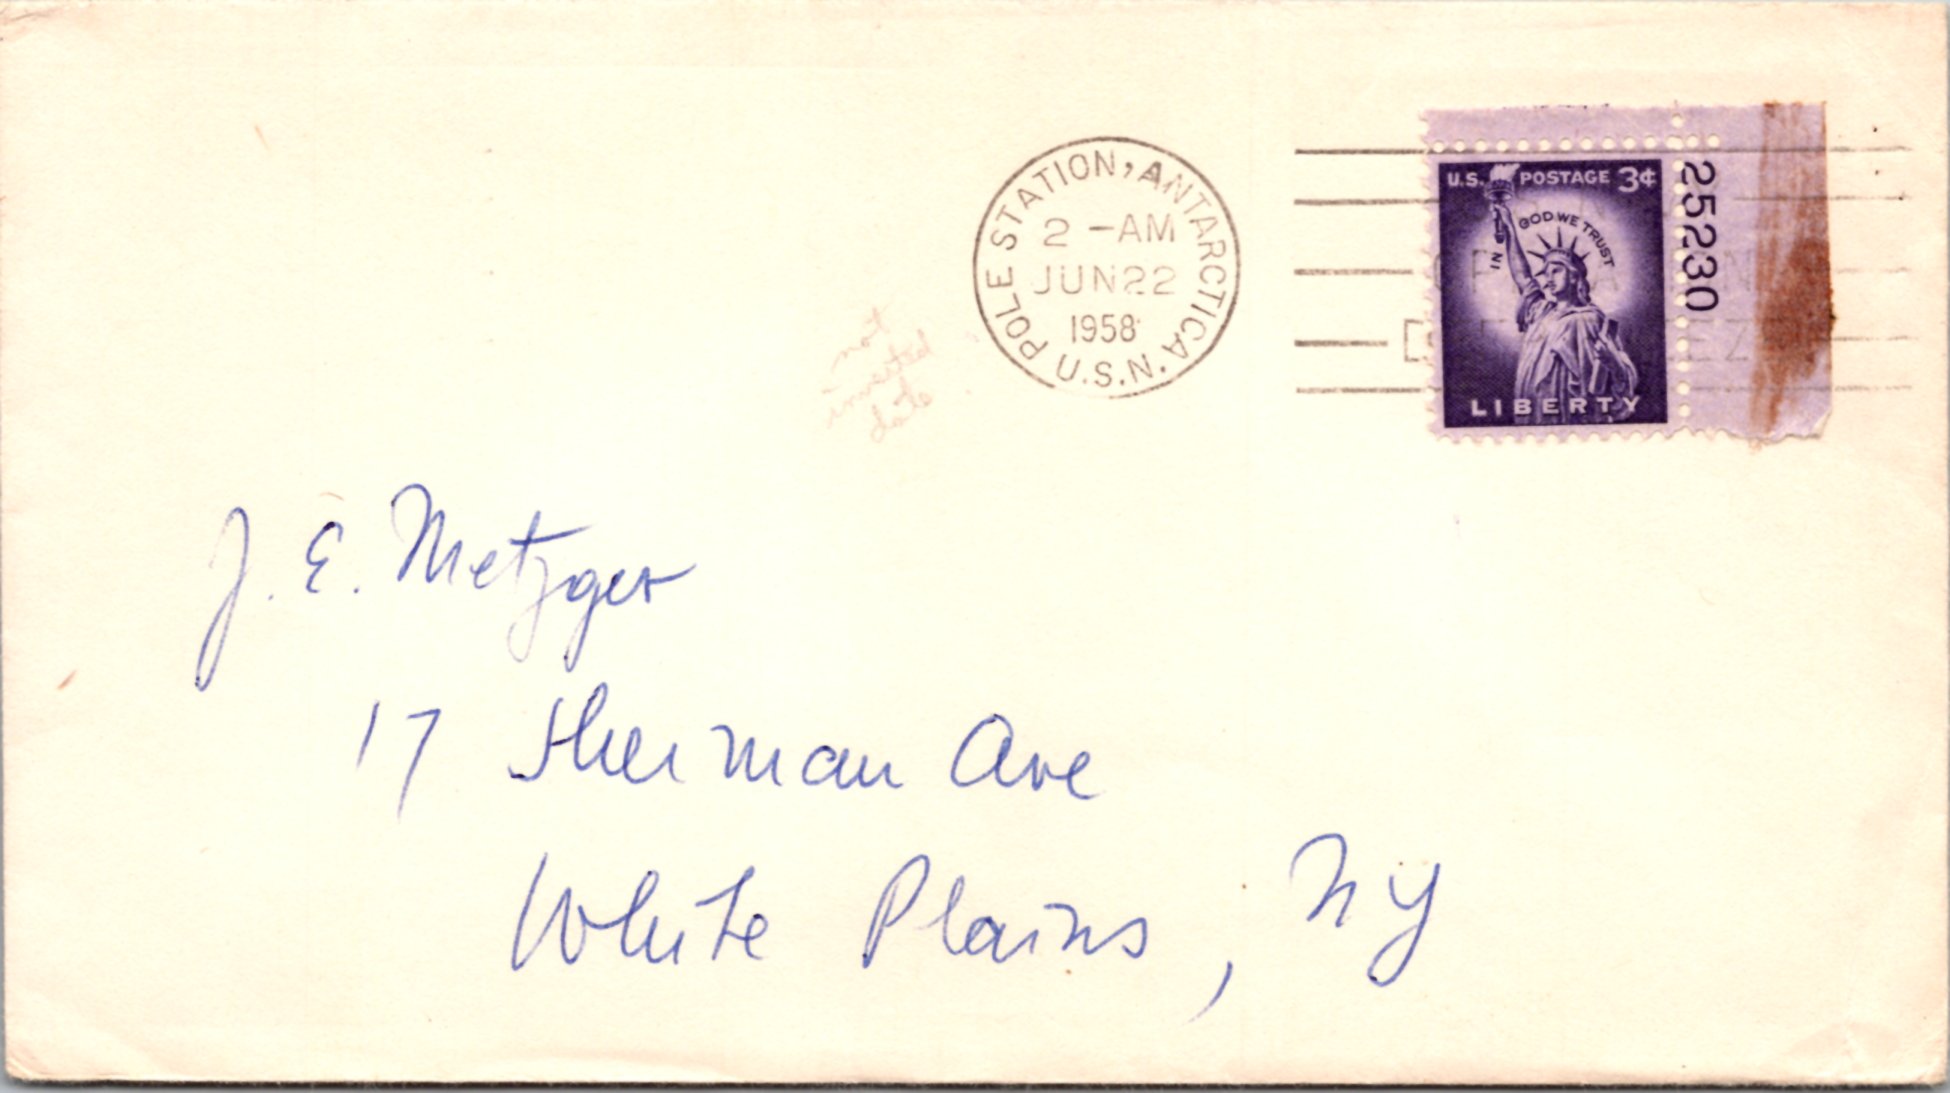 POLE STATION, ANTARCTICA
2 -AM
JUN 22
1958
U.S.N.
U.S. POSTAGE 3¢
IN GOD WE TRUST
LIBERTY
25230
not
inverted
date
J. E. Metzger
17 Sherman Ave
White Plains, NY